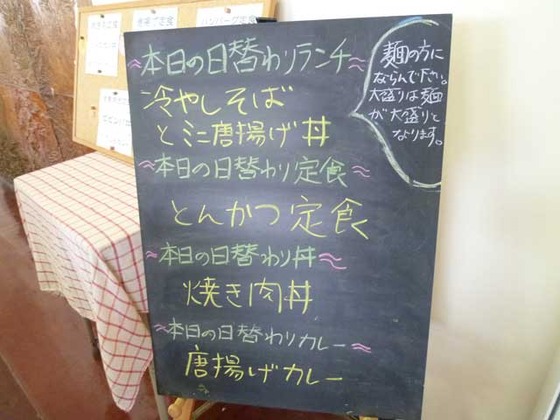 本日の日替わりランチ
冷やしそば
とミニ唐揚げ丼
本日の日替わり定食
とんかつ定食
本日の日替わり丼
焼き肉丼
本日の日替わりカレー
唐揚げカレー
麺の方に
ならんで下さい。
大盛りは麺
が大盛りと
なります。
ハンバーグ定食